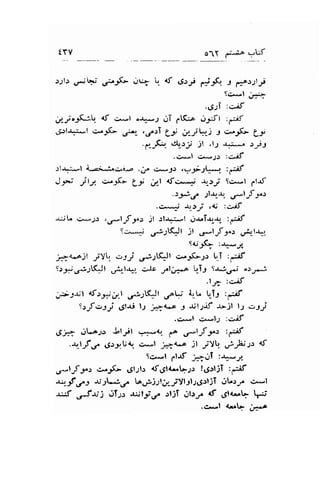 کتاب هشتم ۵۶۲ ۴۳۷
قرار دهیم و بگوئیم فردی که با چنان حکومتی تجانس دارد
چنین است؟
گفت: آری.
گفتم: اکنون آن هنگام رسیده است که باشکوه‌ترین
نوع حکومت و زیباترین نوع آدمی، یعنی حکومت استبدادی
و فرد مستبد را، از نزدیک بنگریم.
گفت: درست است.
گفتم: بسیار خوب، دوست من. مشخصهٔ حکومت استبدادی
کدام است؟ تردید نیست که این نوع حکومت براثر تحول
دموکراسی پدید می‌شود.
گفت: نه، تردید نیست.
گفتم: پدیدآمدن استبداد از دموکراسی، درست مانند
پیدایش دموکراسی از الیگارشی نیست؟
پرسید: چگونه؟
گفتم: آیا حکومت الیگارشی ثروت را بالاتر از همه‌چیز
نمی‌شمرد؟ و آیا همین امر علت پیدایش الیگارشی نبود؟
گفت: چرا.
گفتم: و آیا مایهٔ تباهی الیگارشی این نبود که داشتن
ثروت را از حد گذراند و همه چیز را فدای ثروت کرد؟
گفت: راست است.
گفتم: دموکراسی هم نسبت به افراط در همان چیزی
که در نظرش بالاتر از همه چیز است، از پا درمی‌آید.
پرسید: آن‌چیز کدام است؟
گفتم: آزادی! درجامعه‌ای که دارای حکومت دموکراسی
است مردمان آزادی را والاترین ارزش‌ها می‌شمارند و می‌گویند
تنها جامعه‌ای که مردمان آزاد می‌توانند در آن زندگی کنند
همین جامعه است.